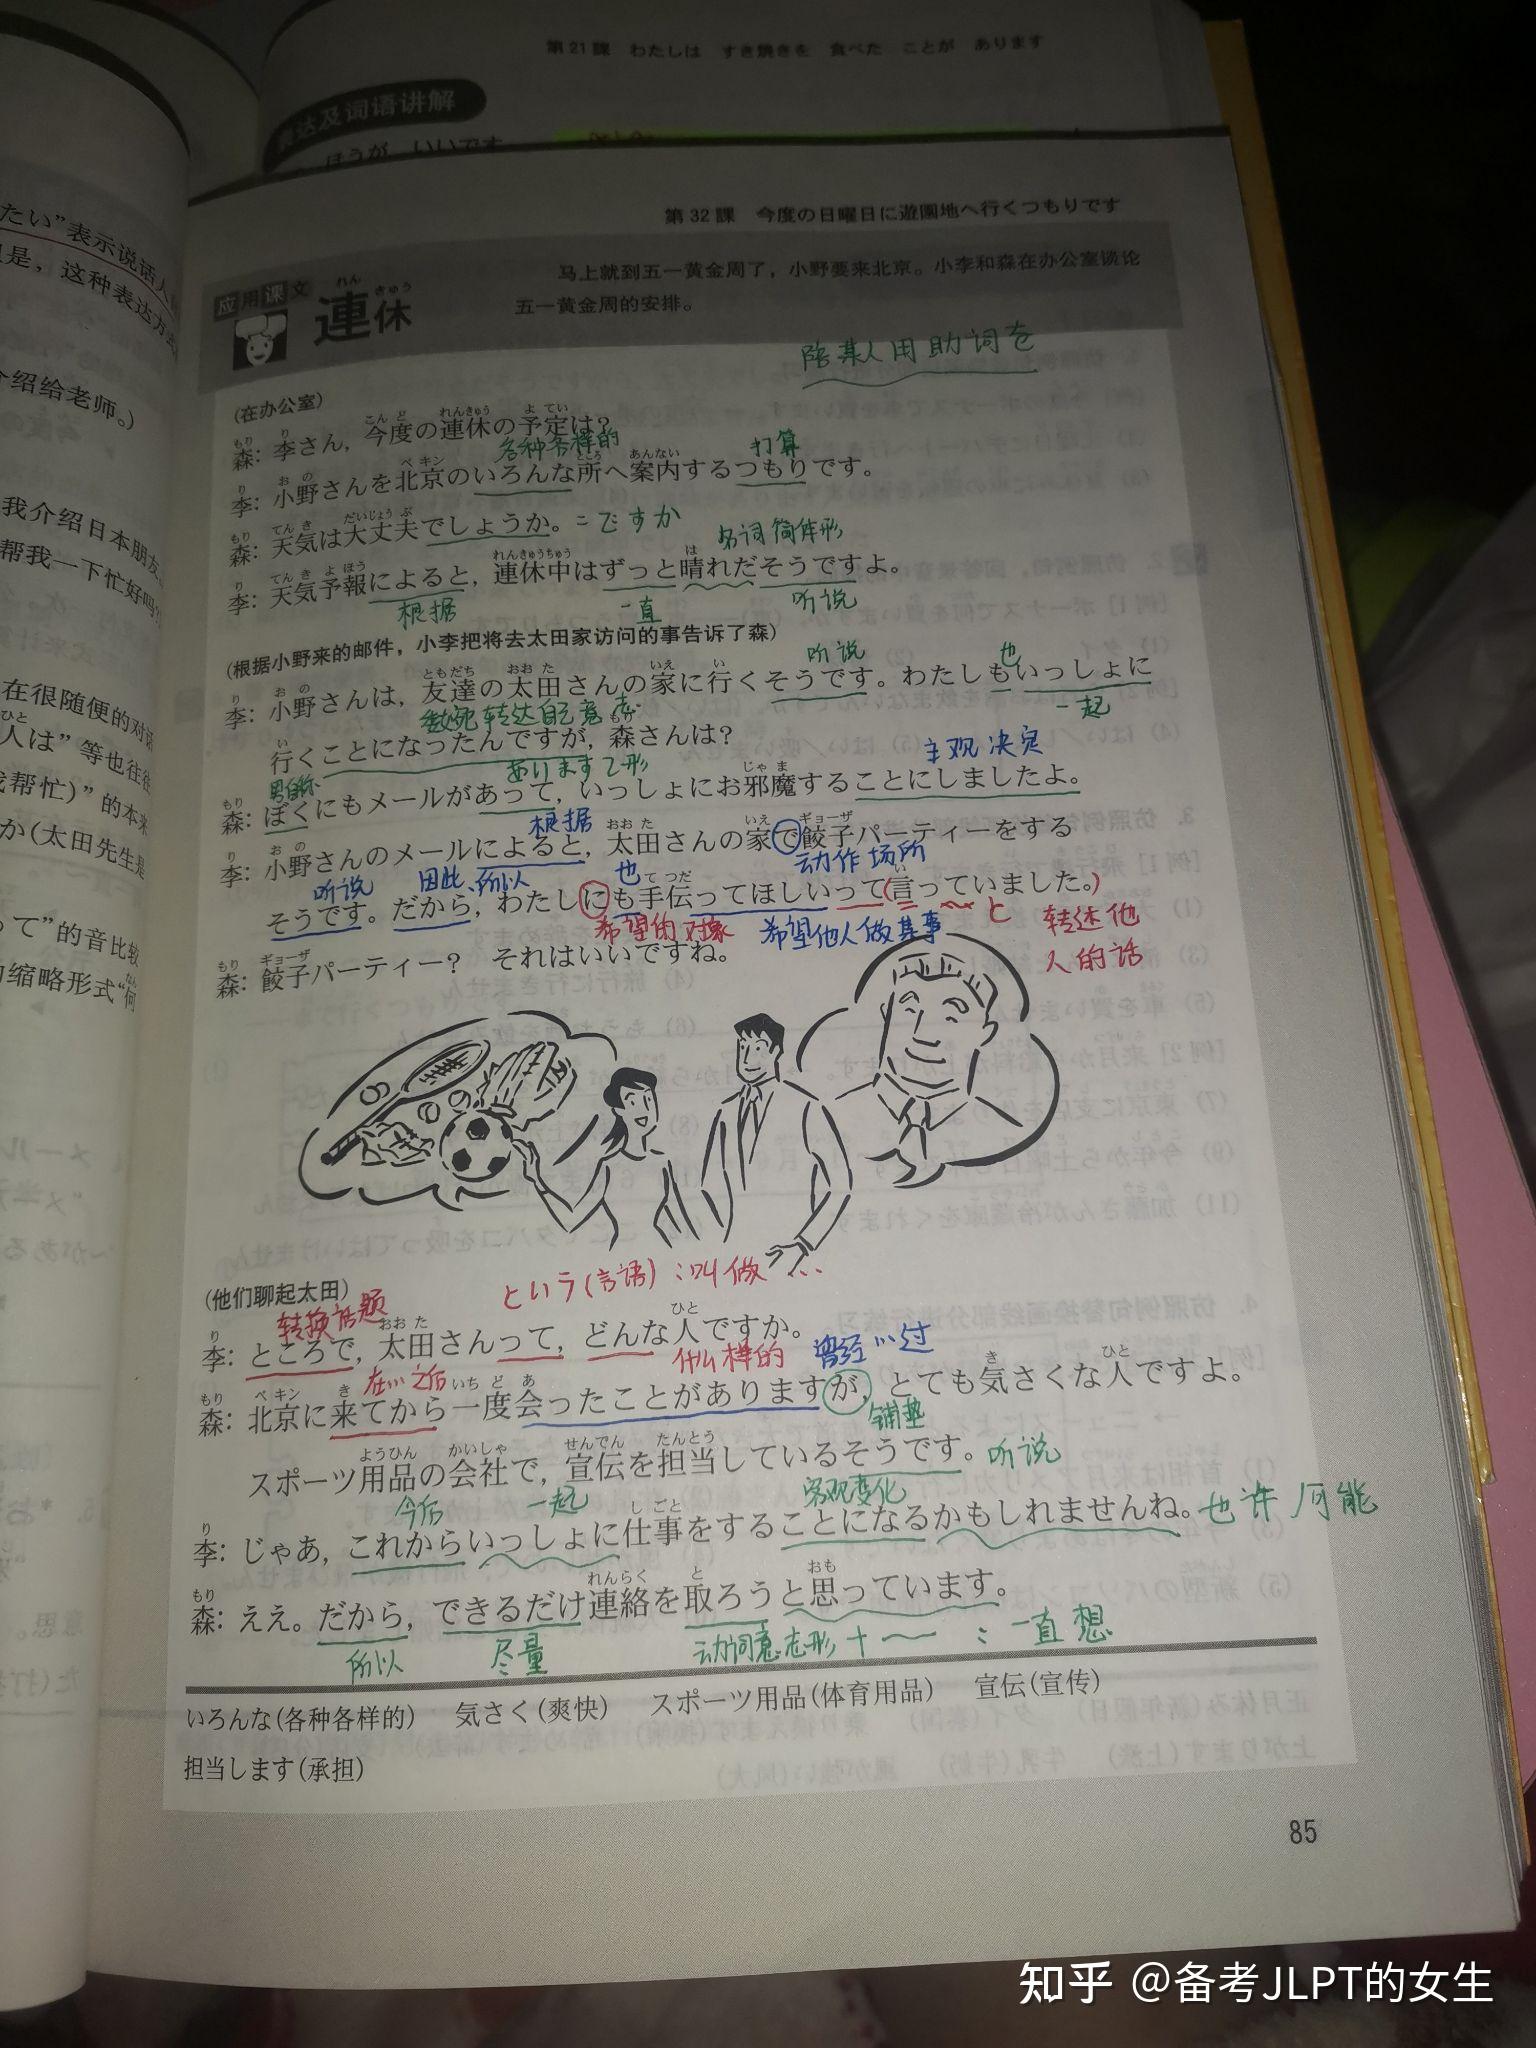 第21課 わたしは すき焼きを 食べた ことが あります
表达及词语讲解
ほうが いいです
たい”表示说话人
但是，这种表达方式
介绍给老师。)
我介绍日本朋友
帮我一下忙好吗?
在很随便的对话
人は”等也往往
找帮忙)”的本来
か(太田先生是
って”的音比较
的缩略形式“何
第32課 今度の日曜日に遊園地へ行くつもりです
应用课文 連休
れん きゅう
马上就到五一黄金周了，小野要来北京。小李和森在办公室谈论
五一黄金周的安排。
陪某人用助词を
(在办公室)
森：李さん，今度の連休の予定は?
各种各样的 打算
李：小野さんを北京のいろんな所へ案内するつもりです。
森：天気は大丈夫でしょうか。=ですか
名词简体形
李：天気予報によると，連休中はずっと晴れだそうですよ。
根据 一直 听说
(根据小野来的邮件，小李把将去太田家访问的事告诉了森)
听说 也
李：小野さんは，友達の太田さんの家に行くそうです。わたしもいっしょに
一起
行くことになったんですが，森さんは?
男自称 ありますて形 主观决定
森：ぼくにもメールがあって，いっしょにお邪魔することにしましたよ。
根据
李：小野さんのメールによると，太田さんの家で餃子パーティーをする
动作场所
听说 因此、所以 也
そうです。だから，わたしにも手伝ってほしいって(言っていました。)
希望的对象 希望他人做某事 と 转述他
人的话
森：餃子パーティー? それはいいですね。
という(言語)：叫做…
(他们聊起太田)
转换话题
李：ところで，太田さんって，どんな人ですか。
在…之后 什么样的 曾经…过
森：北京に来てから一度会ったことがありますが，とても気さくな人ですよ。
铺垫
スポーツ用品の会社で，宣伝を担当しているそうです。听说
今后 一起 客观变化
李：じゃあ，これからいっしょに仕事をすることになるかもしれませんね。也许 可能
森：ええ。だから，できるだけ連絡を取ろうと思っています。
所以 尽量 动词意志形+〜：一直想
いろんな(各种各样的) 気さく(爽快) スポーツ用品(体育用品) 宣伝(宣传)
担当します(承担)
85
知乎 @备考JLPT的女生